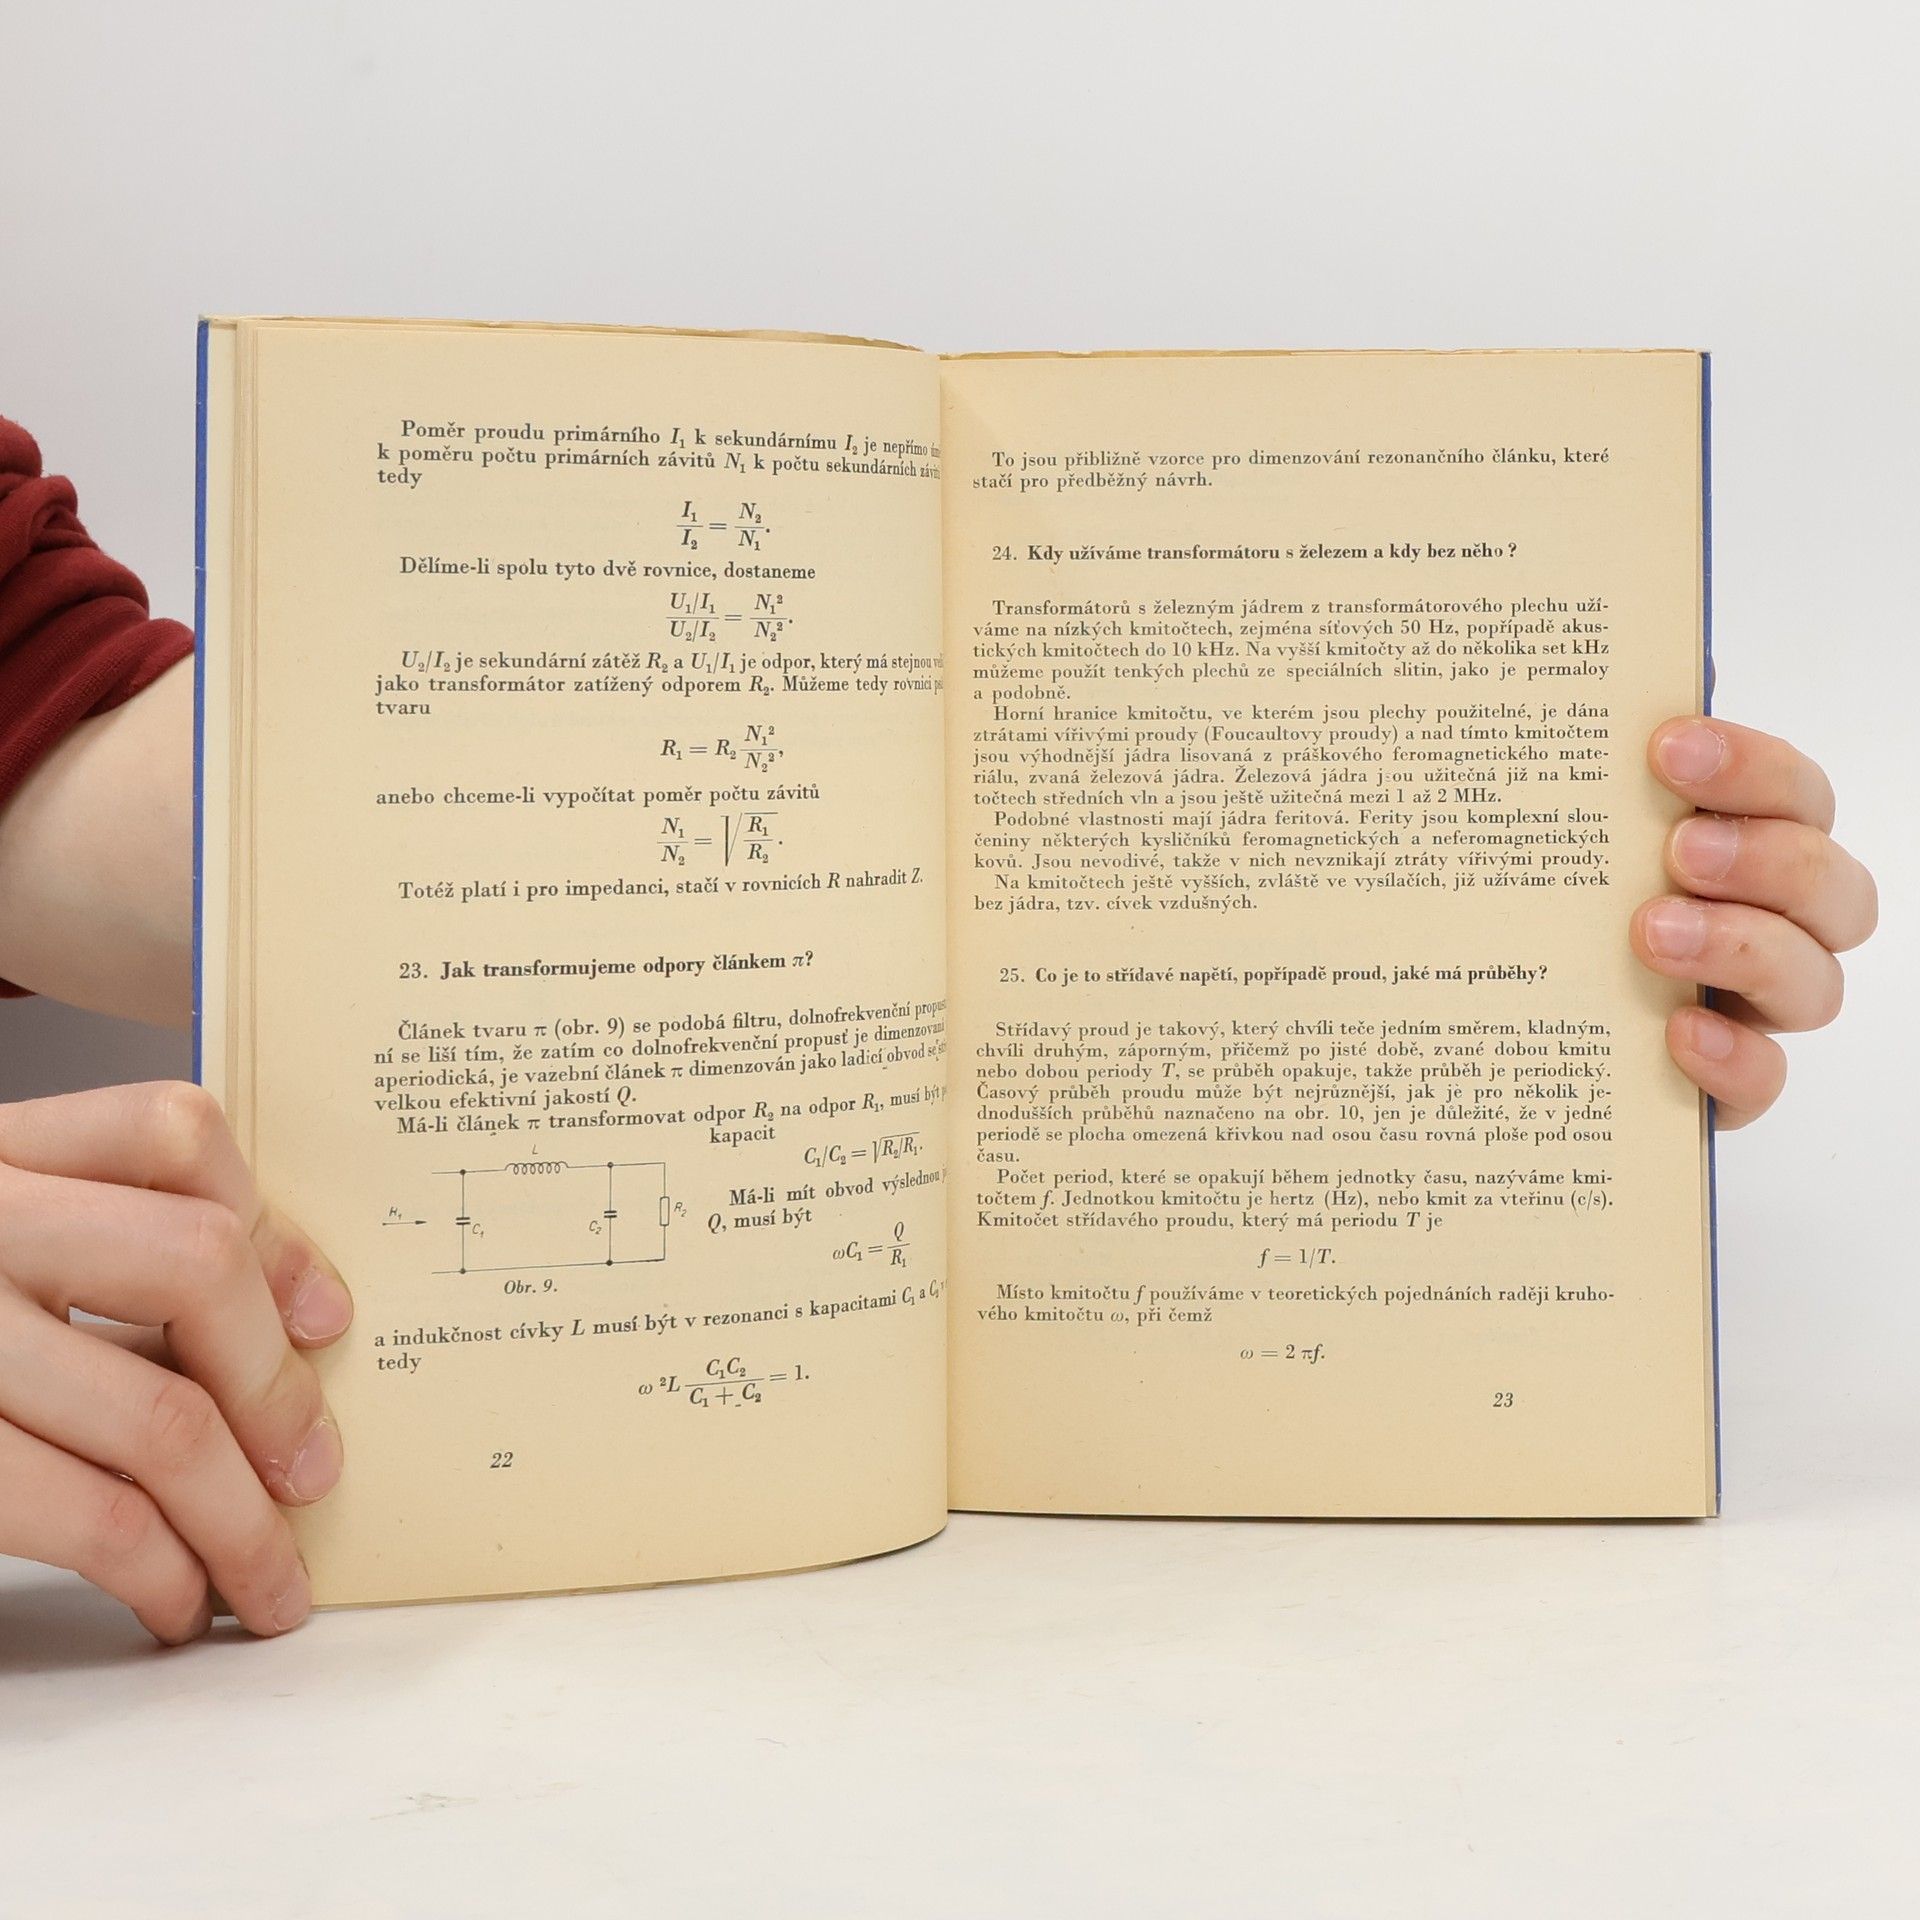 Poměr proudu primárního I₁ k sekundárnímu I₂ je nepřímo
k poměru počtu primárních závitů N₁ k počtu sekundárních
tedy
I₁/I₂ = N₂/N₁.
Dělíme-li spolu tyto dvě rovnice, dostaneme
(U₁/I₁)/(U₂/I₂) = N₁²/N₂².
U₂/I₂ je sekundární zátěž R₂ a U₁/I₁ je odpor, který má stejnou
jako transformátor zatížený odporem R₂. Můžeme tedy rovnici
tvaru
R₁ = R₂ N₁²/N₂²,
anebo chceme-li vypočítat poměr počtu závitů
N₁/N₂ = √(R₁/R₂).
Totéž platí i pro impedanci, stačí v rovnicích R nahradit Z.
23. Jak transformujeme odpory článkem π?
Článek tvaru π (obr. 9) se podobá filtru, dolnofrekvenční
ní se liší tím, že zatím co dolnofrekvenční propusť je
aperiodická, je vazební článek π dimenzován jako ladicí obvod
velkou efektivní jakostí Q.
Má-li článek π transformovat odpor R₂ na odpor R₁, musí být
kapacit
C₁/C₂ = √R₂/R₁.
Má-li mít obvod výslednou
Q, musí být
ωC₁ = Q/R₁
L
R₁
C₁
C₂
R₂
Obr. 9.
a indukčnost cívky L musí být v rezonanci s kapacitami C₁ a C₂
tedy
ω ²L C₁C₂/(C₁ + C₂) = 1.
22
To jsou přibližně vzorce pro dimenzování rezonančního článku, které
stačí pro předběžný návrh.
24. Kdy užíváme transformátoru s železem a kdy bez něho ?
Transformátorů s železným jádrem z transformátorového plechu uží-
váme na nízkých kmitočtech, zejména síťových 50 Hz, popřípadě akus-
tických kmitočtech do 10 kHz. Na vyšší kmitočty až do několika set kHz
můžeme použít tenkých plechů ze speciálních slitin, jako je permaloy
a podobně.
Horní hranice kmitočtu, ve kterém jsou plechy použitelné, je dána
ztrátami vířivými proudy (Foucaultovy proudy) a nad tímto kmitočtem
jsou výhodnější jádra lisovaná z práškového feromagnetického mate-
riálu, zvaná železová jádra. Železová jádra jsou užitečná již na kmi-
točtech středních vln a jsou ještě užitečná mezi 1 až 2 MHz.
Podobné vlastnosti mají jádra feritová. Ferity jsou komplexní slou-
čeniny některých kysličníků feromagnetických a neferomagnetických
kovů. Jsou nevodivé, takže v nich nevznikají ztráty vířivými proudy.
Na kmitočtech ještě vyšších, zvláště ve vysílačích, již užíváme cívek
bez jádra, tzv. cívek vzdušných.
25. Co je to střídavé napětí, popřípadě proud, jaké má průběhy?
Střídavý proud je takový, který chvíli teče jedním směrem, kladným,
chvíli druhým, záporným, přičemž po jisté době, zvané dobou kmitu
nebo dobou periody T, se průběh opakuje, takže průběh je periodický.
Časový průběh proudu může být nejrůznější, jak je pro několik je-
dnodušších průběhů naznačeno na obr. 10, jen je důležité, že v jedné
periodě se plocha omezená křivkou nad osou času rovná ploše pod osou
času.
Počet period, které se opakují během jednotky času, nazýváme kmi-
točtem f. Jednotkou kmitočtu je hertz (Hz), nebo kmit za vteřinu (c/s).
Kmitočet střídavého proudu, který má periodu T je
f = 1/T.
Místo kmitočtu f používáme v teoretických pojednáních raději kruho-
vého kmitočtu ω, při čemž
ω = 2 πf.
23